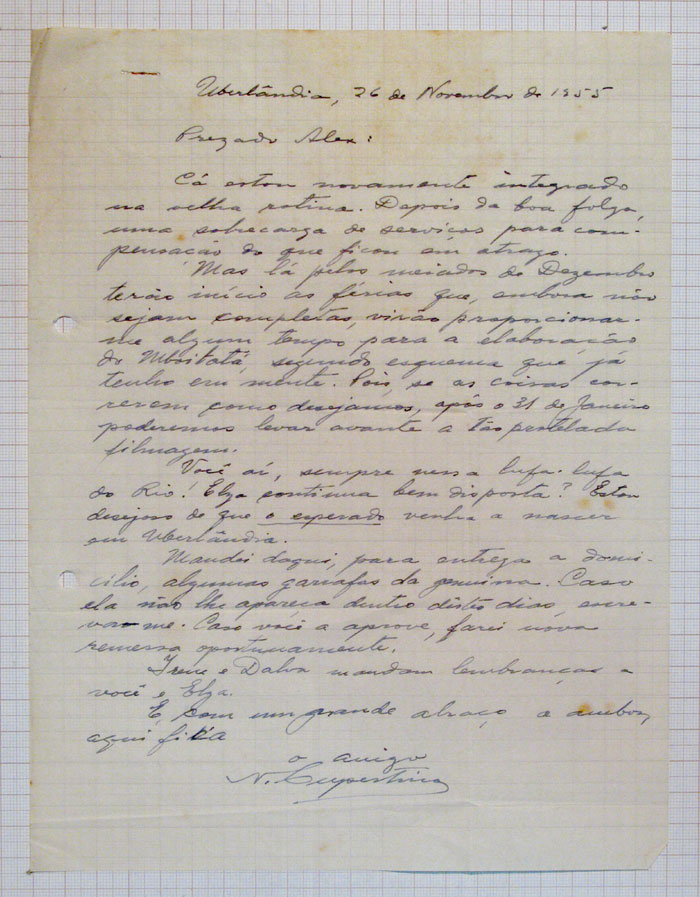 Uberlândia, 26 de Novembro de 1955
Prezado Alex:
Cá estou novamente integrado
na velha rotina. Depois da boa folga,
uma sobrecarga de serviços para com-
pensação do que ficou em atrazo.
Mas lá pelos meiados de Dezembro
terão início as férias que, embora não
sejam completas, virão proporcionar-
me algum tempo para a elaboração
do Mboitatá, segundo esquema que já
tenho em mente. Pois, se as coisas cor-
rerem como desejamos, após o 31 de Janeiro
poderemos levar avante a tão protelada
filmagem.
Você aí, sempre nessa lufa-lufa
do Rio! Elza continua bem disposta? Estou
desejoso de que o esperado venha a nascer
em Uberlândia.
Mandei daqui, para entrega a domi-
cílio, algumas garrafas da genuina. Caso
ela não lhe apareça dentro dêstes dias, escre-
va-me. Caso você a aprove, farei nova
remessa oportunamente.
Irene e Dalva mandam lembranças a
você e Elza.
E, com um grande abraço a ambos,
aqui fica
o amigo
N. Cupertino